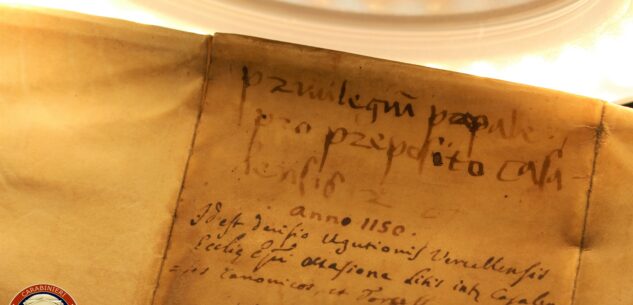 privilegiũ papale
pro preposito Casa-
lensis
anno 1150.
Id est divisio Ugutionis Vercellensis
Ecclię Epi͂ occasione litis int
canonicos, et
CARABINIERI